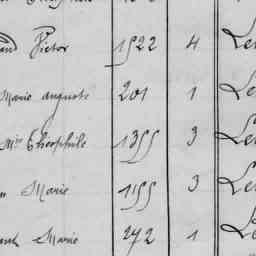 Victor 1522 4 Le
Marie auguste 201 1 Le
Mie Théophile 1355 3 Le
Marie 1155 3 Le
Marie 272 1 Le